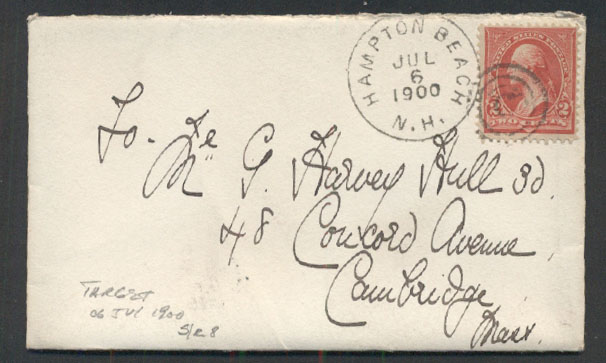 HAMPTON BEACH
JUL
6
1900
N.H.
UNITED STATES POSTAGE
2 2
TWO CENTS
To - Ye
Mr G. Harvey Hull 3d.
48
Concord Avenue
Cambridge
Mass.
TARGET
06 JUL 1900
S/R 8